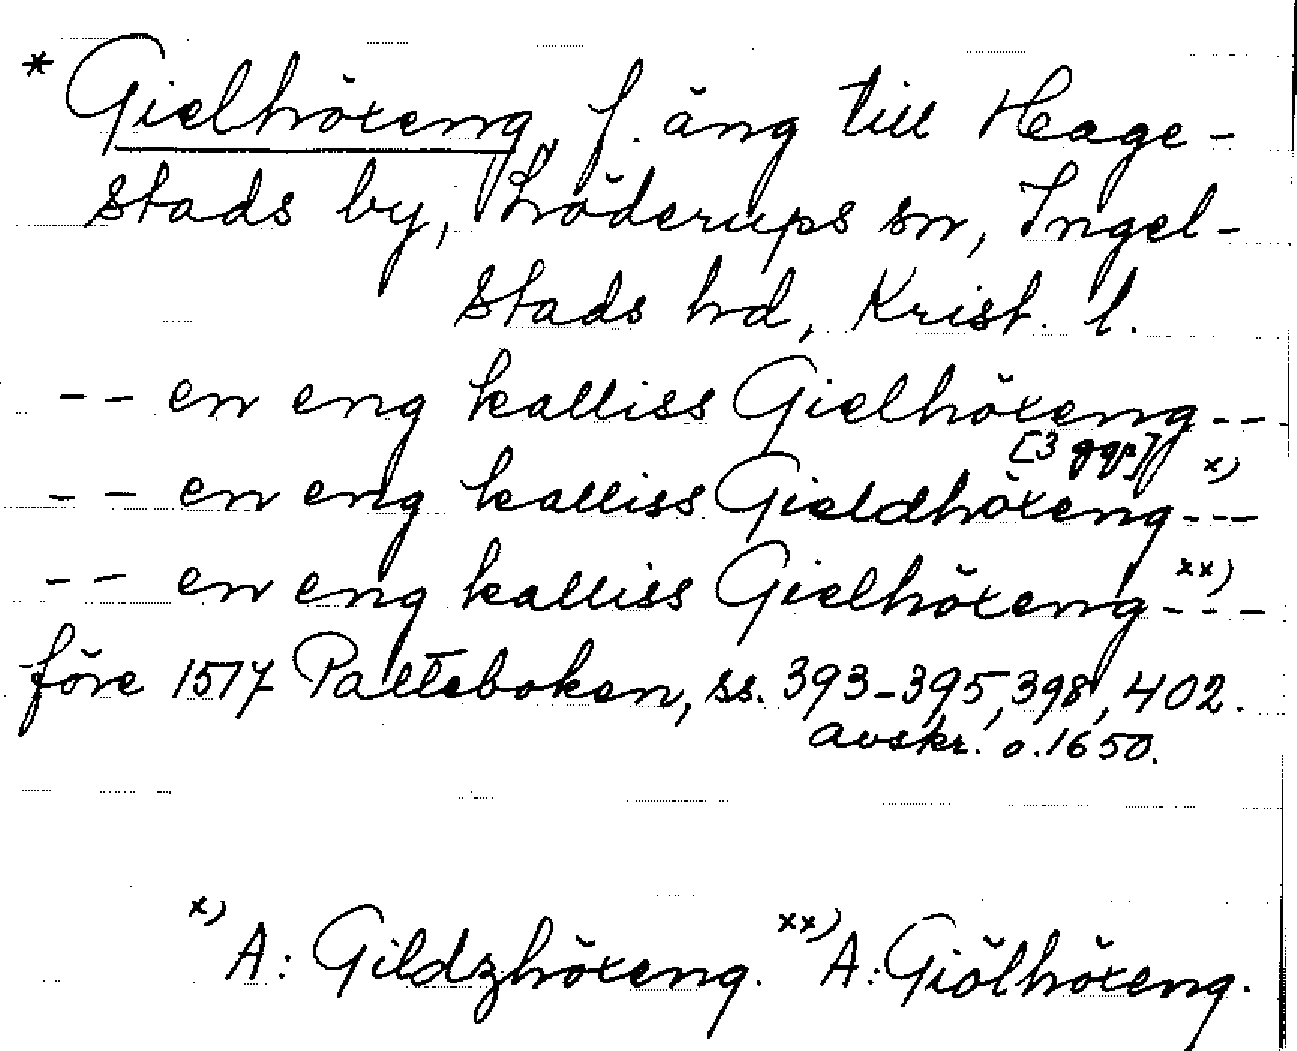 * Gielhöxeng, f. äng till Hage-
stads by, Löderups sn, Ingel-
stads hd, Krist. l.
-- en eng kalliss Gielhöxeng --
[3 ggr]
-- en eng kalliss Gieldhöxeng x) ---
-- en eng kalliss Gielhöxeng xx) ---
före 1517 Palteboken, ss. 393-395, 398, 402.
avskr. o. 1650.
x) A: Gildzhöxeng. xx) A: Giölhöxeng.